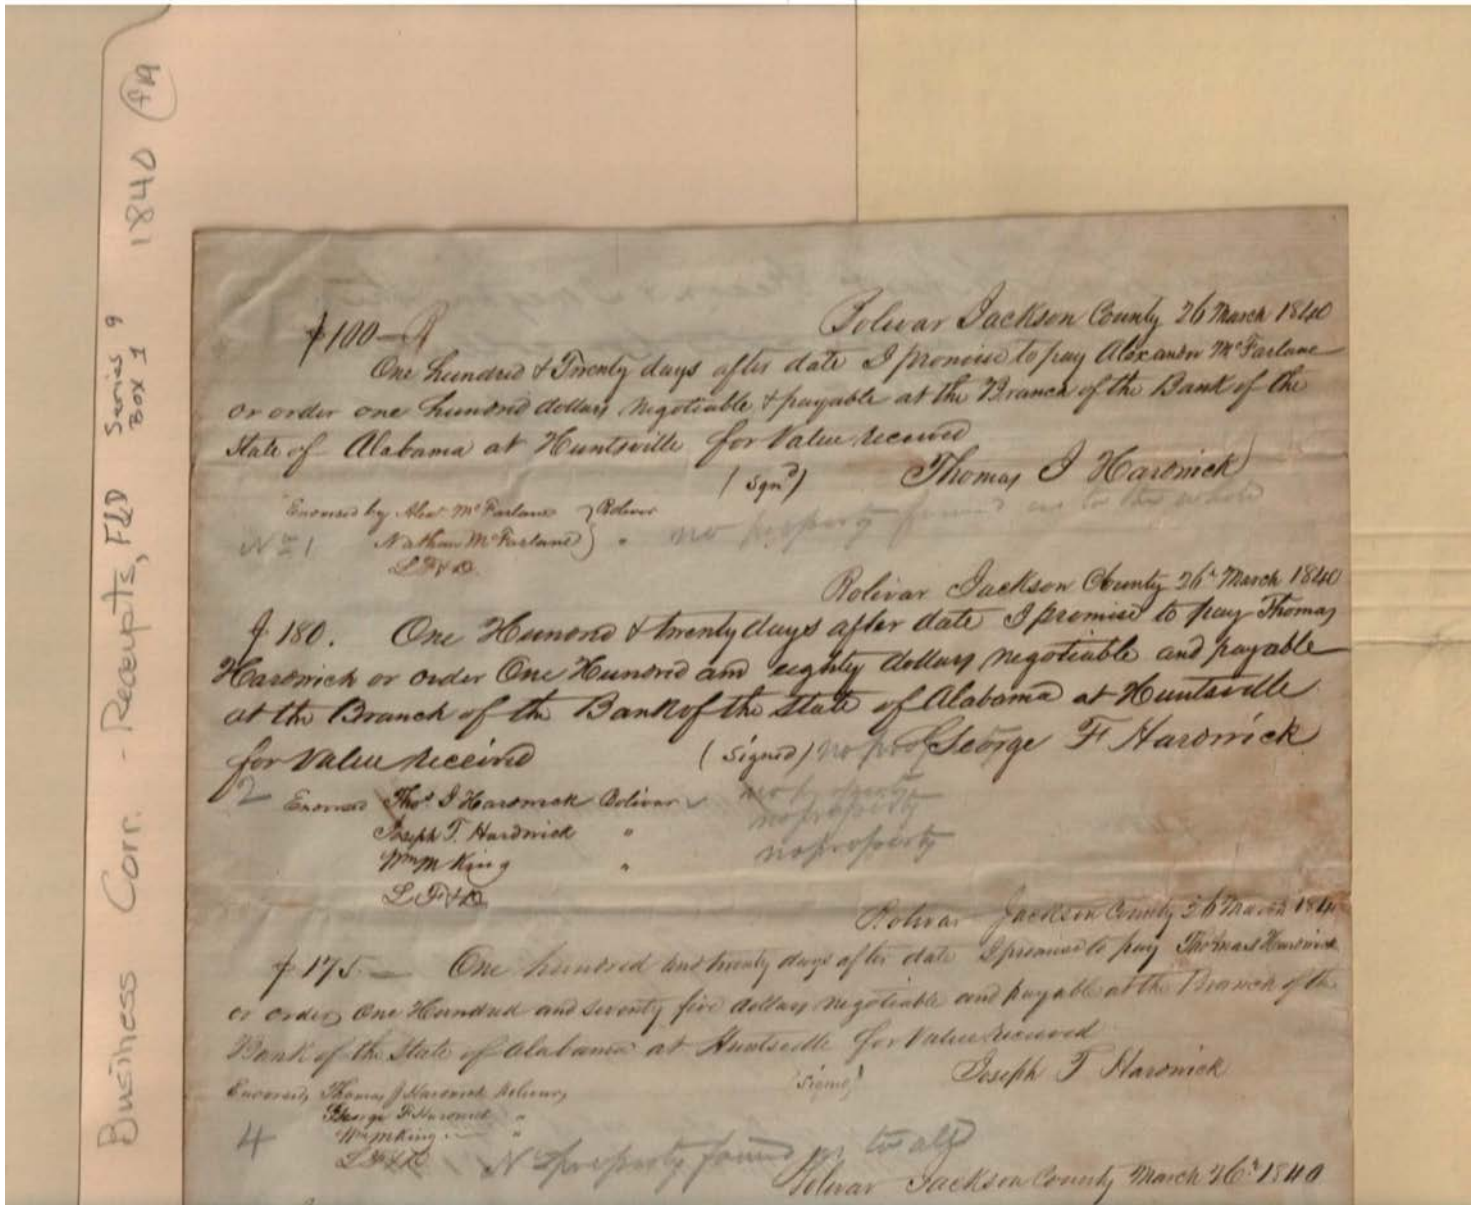 Business Corr. - Receipts, F&D Series 9 1840
Box 1
Bolivar Jackson County 26 March 1840
$100—
One hundred & Twenty days after date I promise to pay Alexander McFarlane
or order one hundred dollars negotiable & payable at the Branch of the Bank of the
State of Alabama at Huntsville for Value received
(Sgnd) Thomas J Hardwick
Endorsed by Alexr McFarlane } Bolivar
No 1 Nathan McFarlane } " no property found as to the whole
L F & D.
Bolivar Jackson County 26th March 1840
$180. One Hundred & twenty days after date I promise to pay Thomas
Hardwick or order One Hundred and eighty dollars negotiable and payable
at the Branch of the Bank of the State of Alabama at Huntsville
for Value received (Signed) George F Hardwick
2 Endorsed Thos J Hardwick Bolivar no property
Joseph T. Hardwick " no property
Wm M King " no property
L F & D.
Bolivar Jackson County 26 March 1840
$175.— One hundred and twenty days after date I promise to pay Thomas Hardwick
or order One Hundred and seventy five dollars negotiable and payable at the Branch of the
Bank of the State of Alabama at Huntsville for Value received
(Signed) Joseph T Hardwick
Endorsed, Thomas J Hardwick Bolivar
George F Hardwick "
4 Wm M King "
L F & D No property found as to all
Bolivar Jackson County March 26th 1840